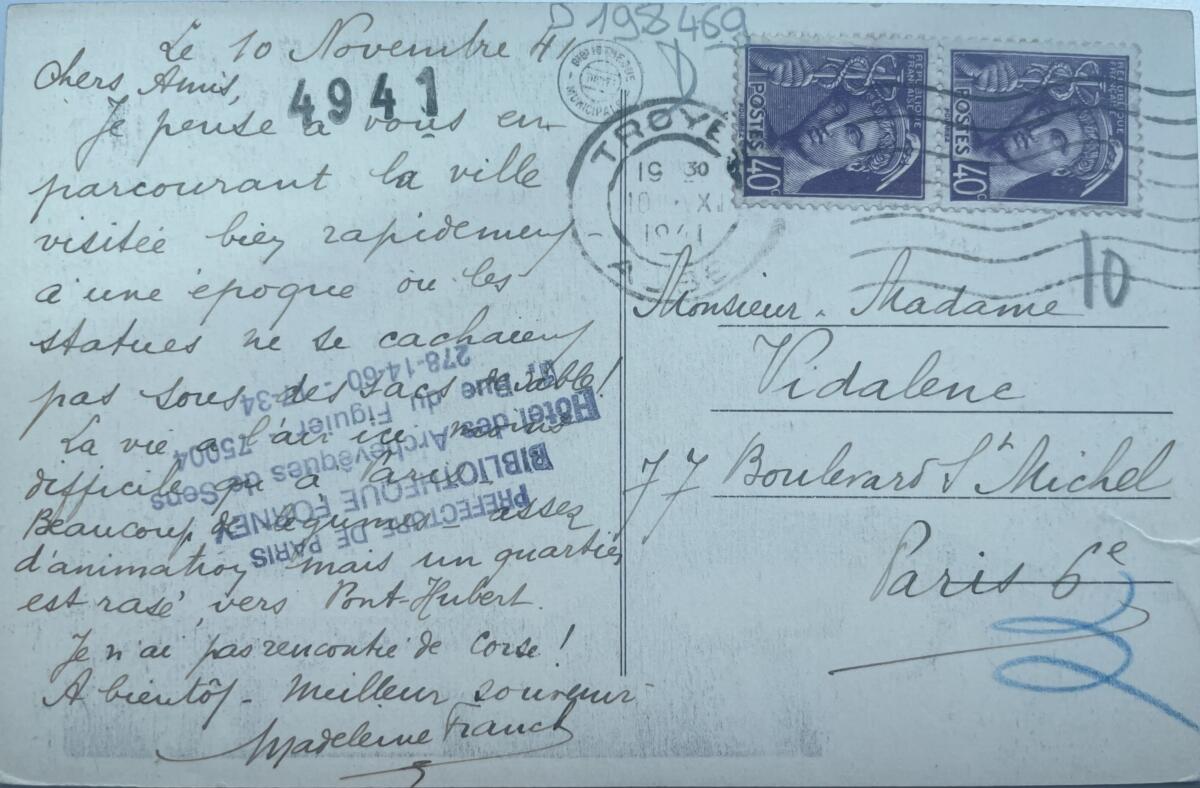 D 198469
Le 10 Novembre 41
4941
Chers Amis,
Je pense à vous en
parcourant la ville
visitée bien rapidement
à une époque où les
statues ne se cachaient
pas sous des sacs de sable !
La vie a l'air ici moins
difficile qu'à Paris.
Beaucoup de légumes - assez
d'animation mais un quartier
est rasé, vers Pont-Hubert.
Je n'ai pas rencontré de Corse !
A bientôt - Meilleur souvenir
Madeleine Franck
BIBLIOTHEQUE
MUNICIPALE
TROYE
19 30
10 XI
1941
REPUBLIQUE
FRANÇAISE
POSTES
40c
REPUBLIQUE
FRANÇAISE
POSTES
40c
10
Monsieur. Madame
Vidalenc
77 Boulevard St Michel
Paris 6e
PREFECTURE DE PARIS
BIBLIOTHEQUE FORNEY
Hôtel des Archevêques de Sens
1, Rue du Figuier 75004
278-14-60 - 17-34